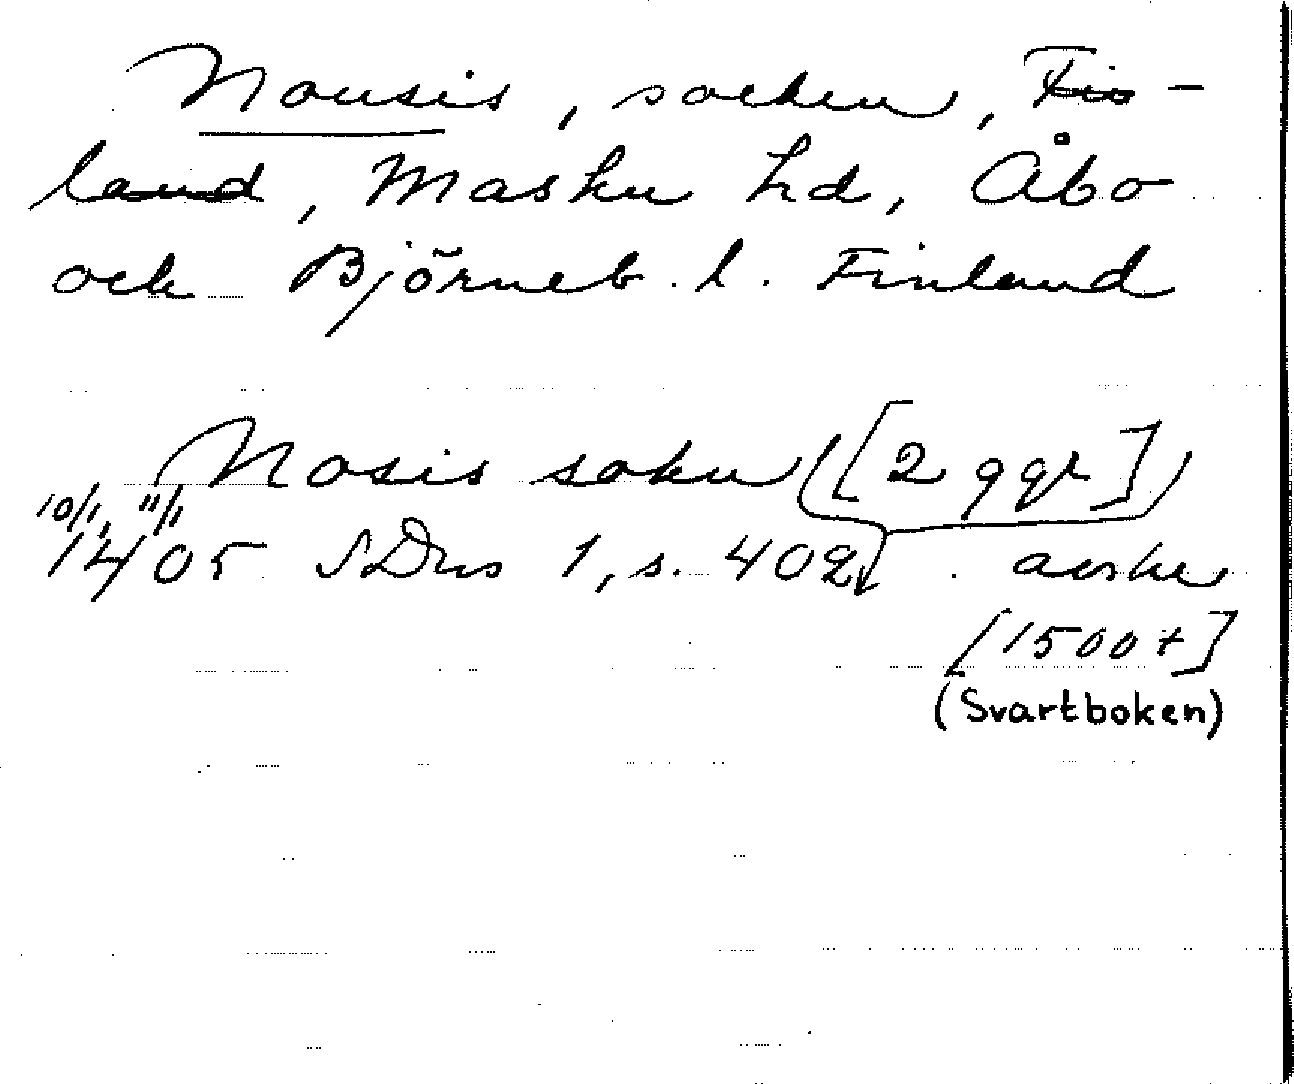 Nousis, socken, Fin-
land, Masku hd, Åbo
och Björneb. l. Finland
Nosis sokn ([2 ggr])
10/1, 11/1
1405 SDns 1, s. 402. avskr
[1500+]
(Svartboken)